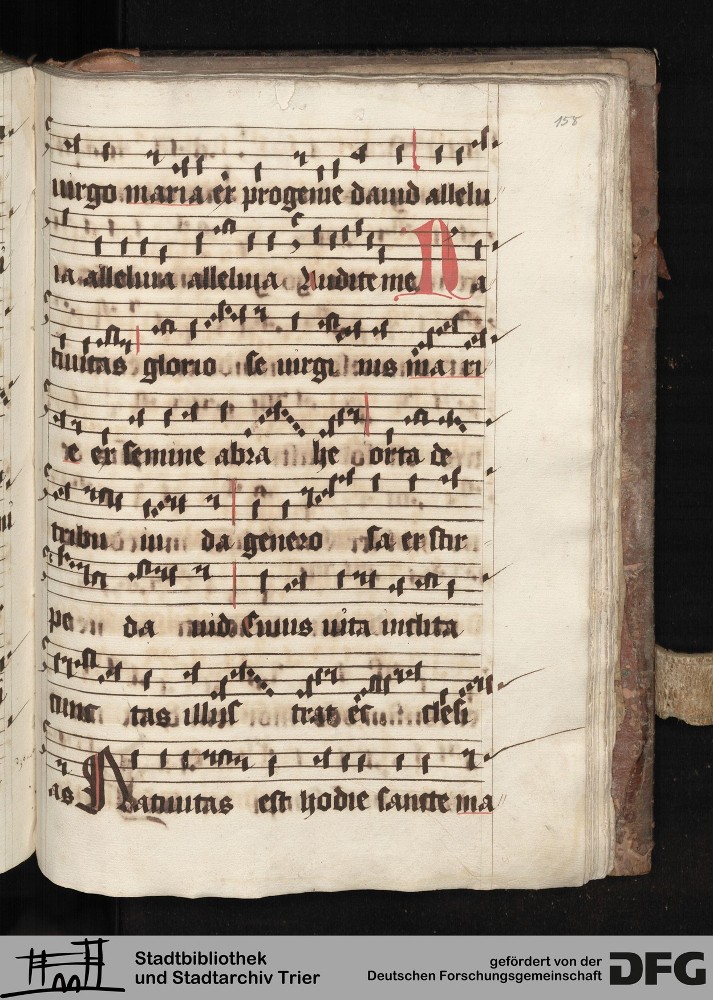 158
virgo maria ex progenie dauid allelu
ia alleluia alleluia Audite me Na
tiuitas glorio se uirgi nis ma ri
e ex semine abra he orta de
tribu iu da genero sa ex stir
pe da uid Cuius uita inclita
cunc tas illus trat ec clesi
as Natiuitas est hodie sancte ma
Stadtbibliothek
und Stadtarchiv Trier
gefördert von der
Deutschen Forschungsgemeinschaft
DFG